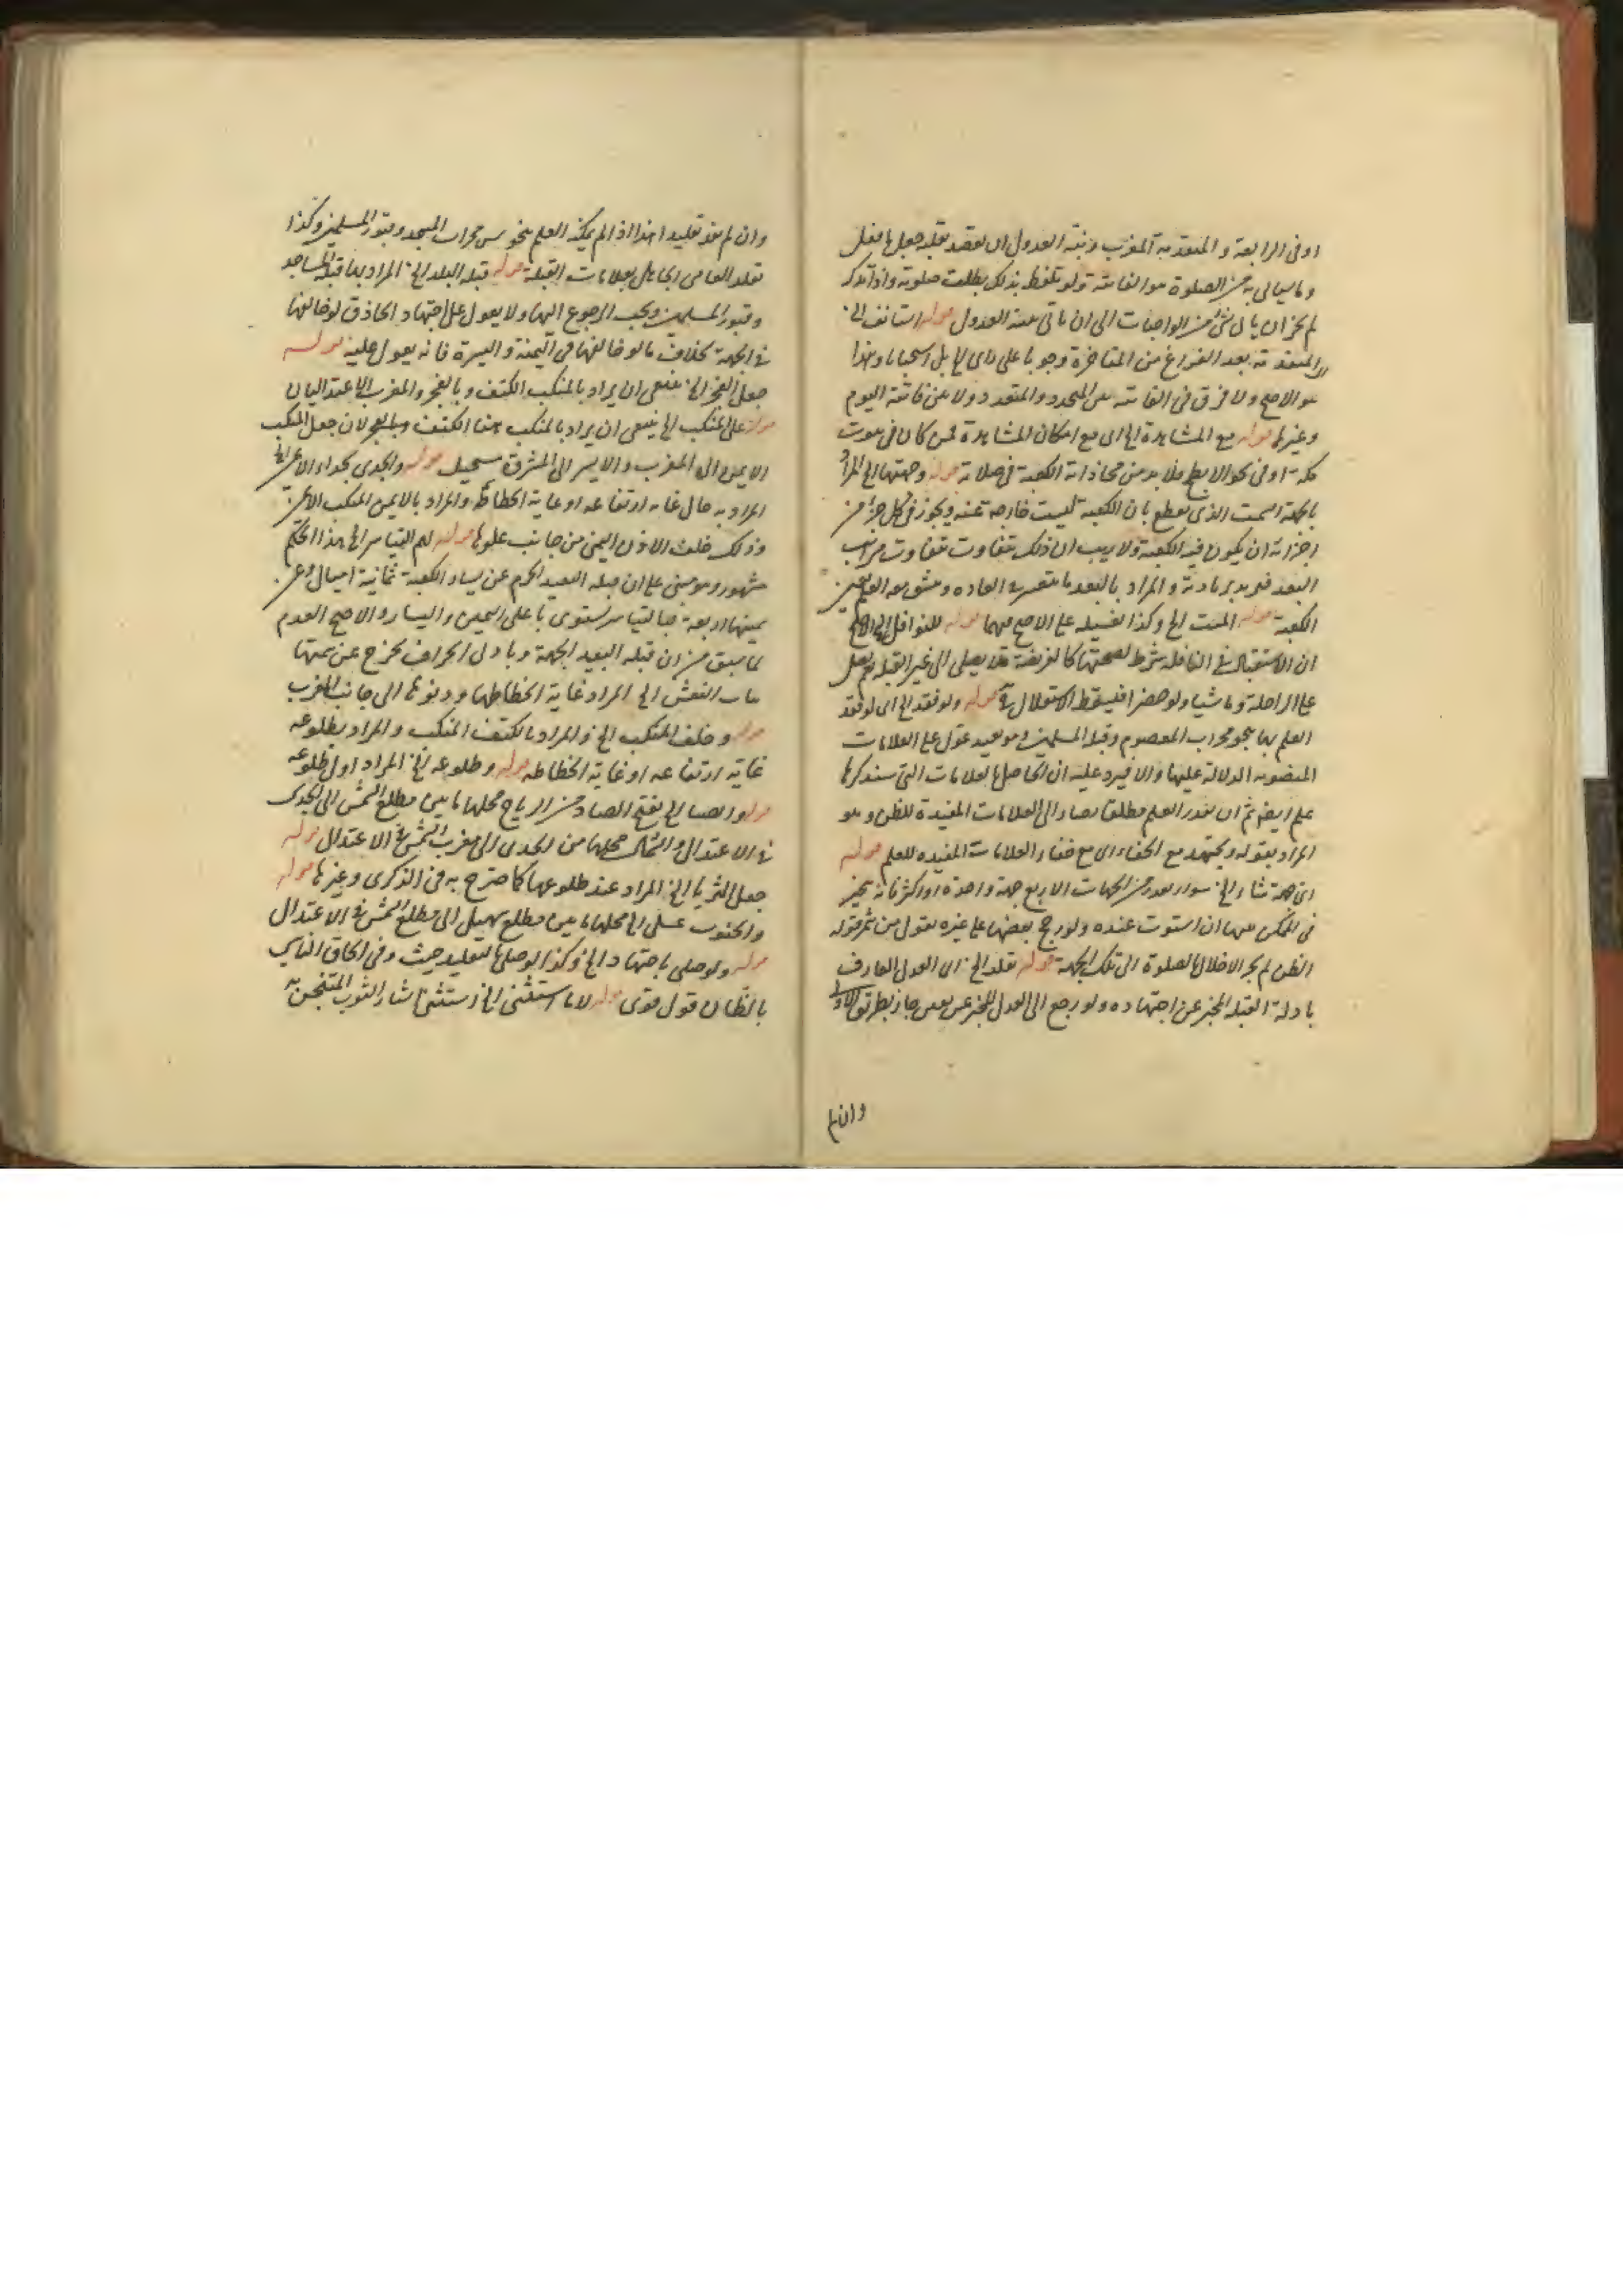 او فى الرابعة و المتقدمة المغرب ونية العدول ان يقصد بقلبه جعل ما فعل
وما سياتى به من الصلوة هو الفائتة ولو تلفظ بذلك بطلت صلوته واذا تذكر
لم يجز ان ياتى بشئ من الواجبات الى ان ياتى بنية العدول قوله استانف الخ
المتقدمة بعد الفراغ من المتاخرة وجوبا على راى لا بل استحبابا وهذا
هو الاصح ولا فرق فى الفائتة بين المتحدد والمتعدد ولا بين فائتة اليوم
وغيرها قوله مع المشاهدة الخ اى مع امكان المشاهدة لمن كان فى بيوت
مكة او فى نحو الابطح فلا بد من محاذاة الكعبة فى صلاته قوله وجهتها الخ المراد
بالجهة السمت الذى يقطع بان الكعبة ليست خارجة عنه ويجوز فى كل جزء من
اجزائه ان يكون فيه الكعبة ولا ريب ان ذلك يتفاوت بتفاوت مراتب
البعد والمراد بالبعد ما يتعسر فى العادة ويشق معه العلم بعين
الكعبة قوله الميت الخ وكذا تغسيله على الاصح فيهما قوله للنوافل الخ الاصح
ان الاستقبال فى النافلة شرط لصحتها كالفريضة فلا يصلى الى غير القبلة
على الراحلة وماشيا ولو حضرا فيسقط الاستقبال قوله ولو فقد الخ اى لو فقد
العلم بها بنحو محراب المعصوم وقبلة المسلمين وهو بعيد عول على العلامات
المنصوبة للدلالة عليها والا فيرد عليه ان الحاصل بالعلامات التى سنذكرها
علم ايضا ثم ان تعذر العلم مطلقا يصار الى العلامات المفيدة للظن وهو
المراد بقوله ويجتهد مع الخفاء اى مع خفاء العلامات المفيدة للعلم قوله
اى جهة شاء الخ سواء تعذر من الجهات الاربع جهة واحدة او اكثر فانه يتخير
فى الممكن منها ان استوت عنده ولو رجح بعضها على غيره
الظن لم يجز الاخلال بالصلوة الى تلك الجهة قوله قلد الخ اى العدل العارف
بادلة القبلة المخبر عن اجتهاده ولو رجع الى العدل المخبر عن يقين جاز بطريق الاولى
وان لم
وان لم يفد تقليدا هذا اذا لم يمكنه العلم بنحو من محراب المسجد وقبور المسلمين وكذا
يقلد العامى الجاهل بعلامات القبلة قوله قبلة البلد الخ المراد بها قبلة المساجد
وقبور المسلمين ويجب الرجوع اليها ولا يعول على اجتهاد الحاذق لو خالفها
فى الجهة بخلاف ما لو خالفها فى اليمنة واليسرة فانه يعول عليه قوله
جعل الفجر الخ ينبغى ان يراد بالمنكب الكتف وبالفجر والمغرب الاعتداليان
قوله على المنكب الخ ينبغى ان يراد بالمنكب هنا الكتف لان جعل المنكب
الايمن الى المغرب والايسر الى المشرق مستحيل قوله والجدى بحذاء الايمن الخ
المراد به حال غاية ارتفاعه او غاية انحطاطه والمراد بالايمن المنكب الايمن
وذلك خلف الاذن اليمنى من جانب علوها قوله لهم التياسر الخ هذا الحكم
مشهور وهو مبنى على ان قبلة البعيد الحرم عن يسار الكعبة ثمانية اميال وعن
يمينها اربعة فبالتياسر يستوى باعلى اليمين واليسار والاصح العدم
لما سبق من ان قبلة البعيد الجهة وبادنى انحراف يخرج عن سمتها
بنات النعش الخ المراد غاية انحطاطها ودنوها الى جانب المغرب
قوله وخلف المنكب الخ والمراد بالكتف المنكب والمراد بطلوعه
غاية ارتفاعه او غاية انحطاطه قوله وطلوعه الخ المراد اول طلوعه
قوله والصبا الخ بفتح الصاد من الرياح محلها ما بين مطلع الشمس الى الجدى
فى الاعتدال والشمال محلها من الجدى الى مغرب الشمس فى الاعتدال قوله
جعل الثريا الخ المراد عند طلوعها كما صرح به فى الذكرى وغيرها قوله
والجنوب على الخ محلها ما بين مطلع سهيل الى مطلع الشمس فى الاعتدال
قوله ولو صلى باجتهاد الخ وكذا لو صلى بالتقليد حيث وفى الحاق الناسى
بالظان قول قوى قوله الا ما استثنى الخ